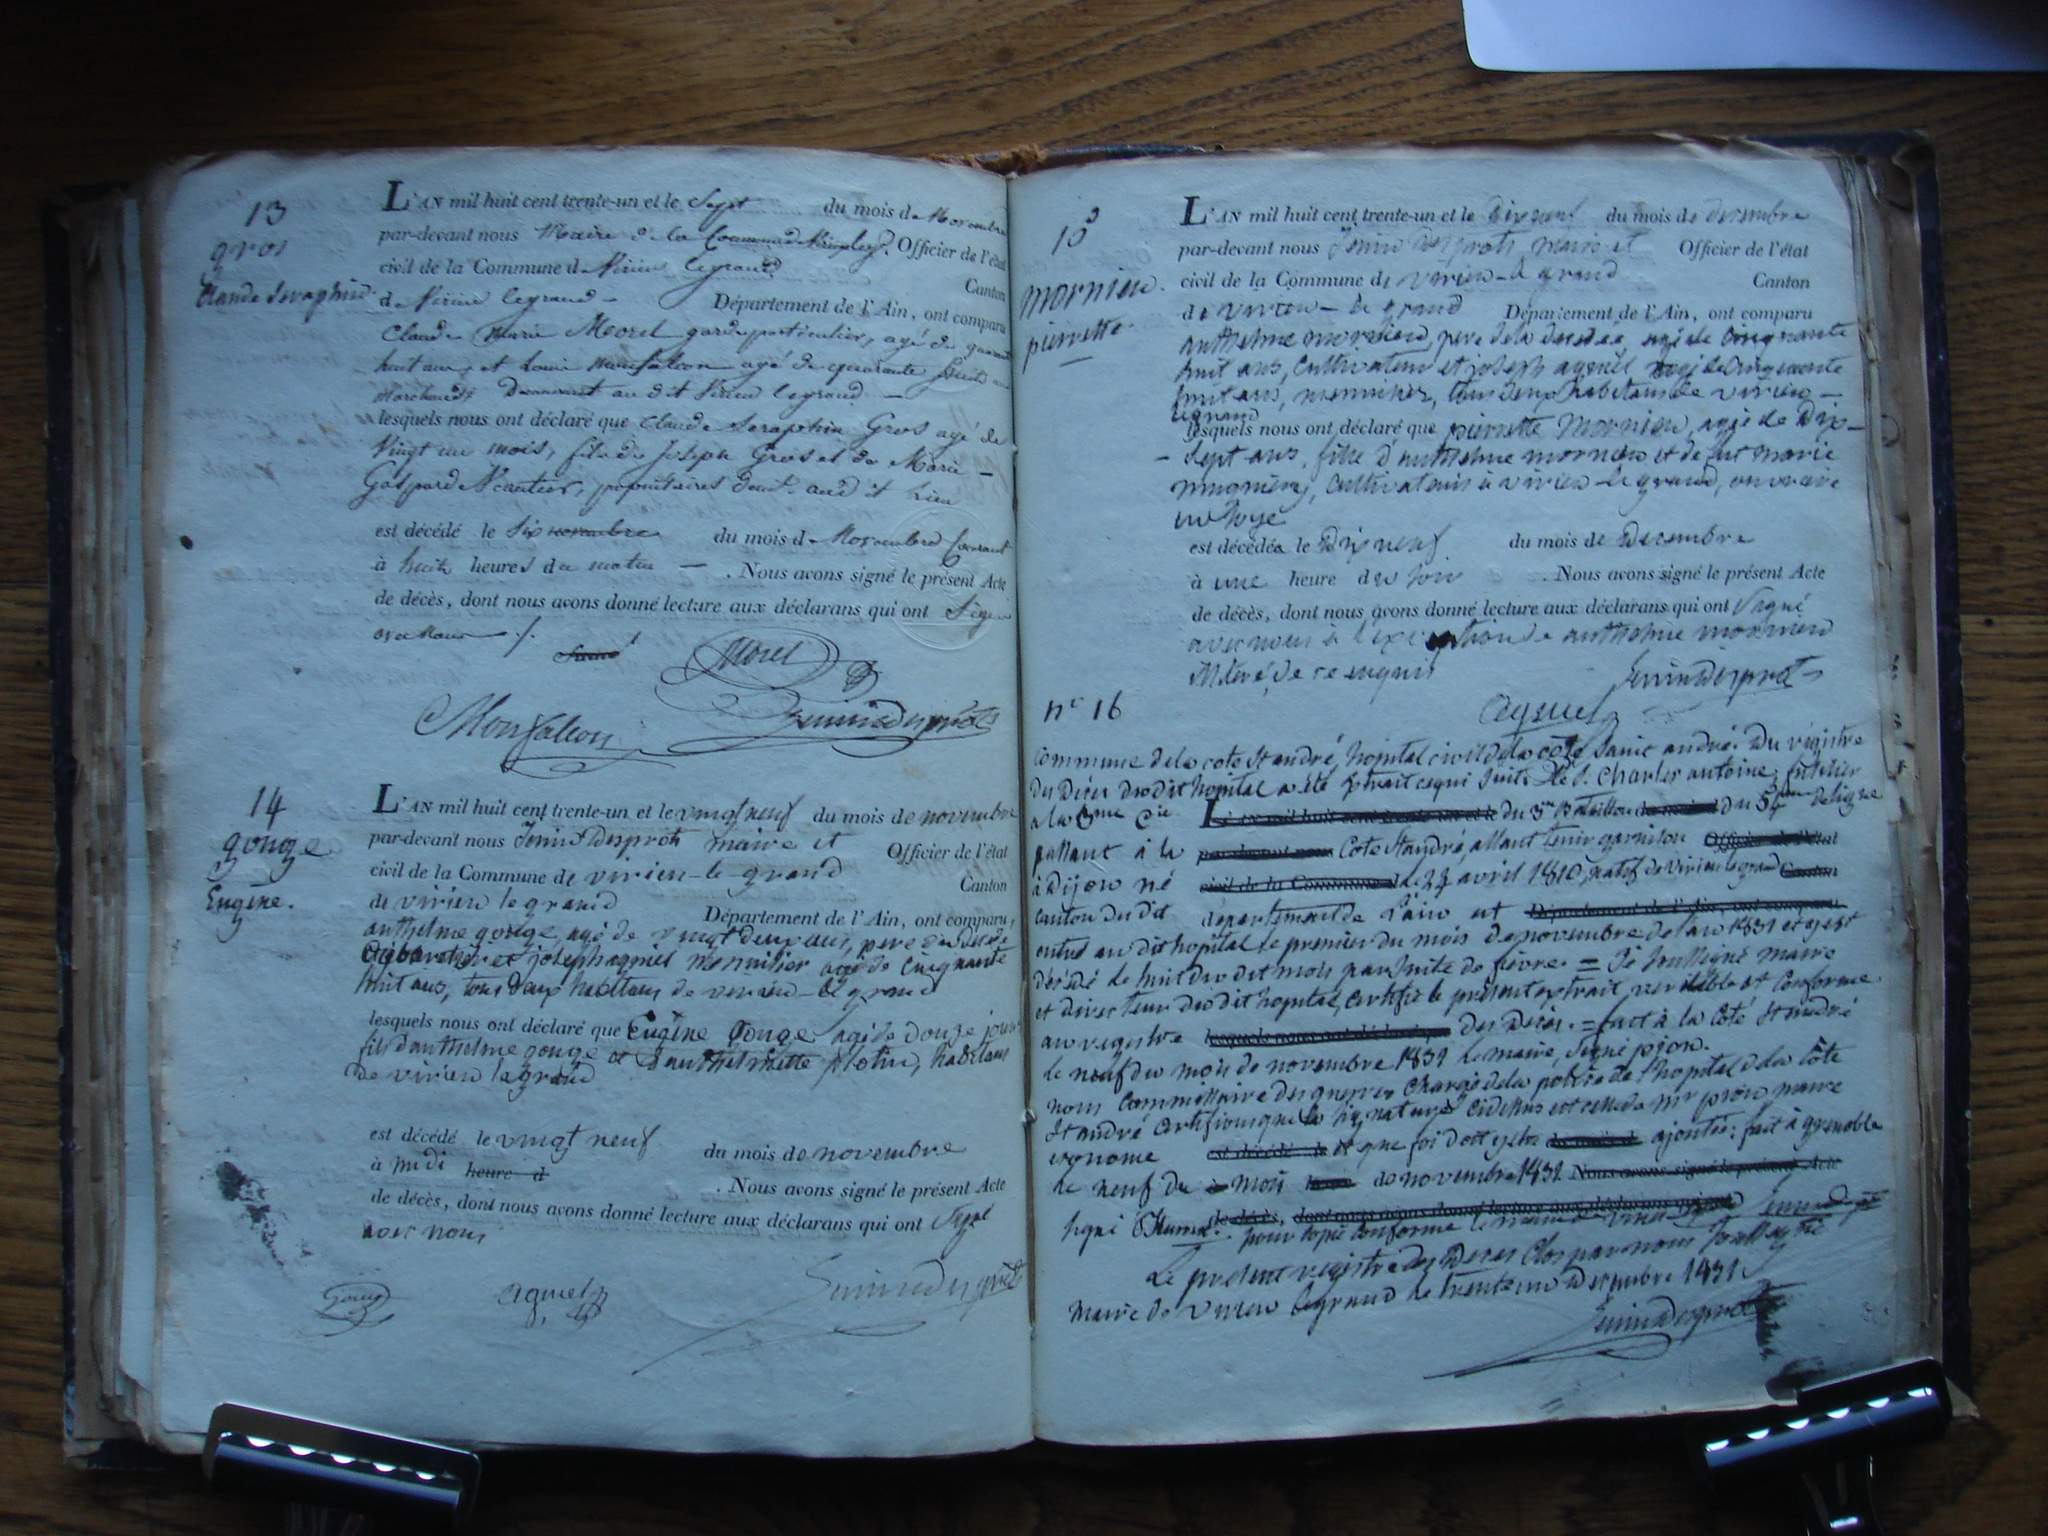 13
gros
Claude Seraphin
L'AN mil huit cent trente-un et le Sept du mois de Novembre
par-devant nous Maire de la Commune de Virieu legd. Officier de l'état
civil de la Commune de Virieu legrand Canton
de Virieu legrand - Département de l'Ain, ont comparu
Claude Marie Morel garde particulier, agé de quarante
huit ans, et Louis Monfalcon agé de quarante huit ans
Marchands Demeurant au dit Virieu legrand —
lesquels nous ont déclaré que Claude Seraphin Gros agé de
Vingt un mois, fils de Joseph Gros et de Marie -
Gaspard propriétaires demt. aud it lieu
est décédé le Six novembre du mois de Novembre Courant
à huit heures du matin — . Nous avons signé le présent Acte
de décès, dont nous avons donné lecture aux déclarans qui ont Signé
avec Nous ./.
Morel
Monfalcon
Jenin Desprots
14
gouge
Eugène.
L'AN mil huit cent trente-un et le vingt neuf du mois de novembre
par-devant nous Jenin Desprots maire et Officier de l'état
civil de la Commune de virieu-le-grand Canton
de virieu le grand Département de l'Ain, ont comparu,
anthelme gouge, agé de vingt deux ans, pere du décédé
et joseph agniel menuisier agé de cinquante
huit ans, tous deux habitans de virieu-le grand
lesquels nous ont déclaré que Eugène Gouge agé de douze jours
fils d'anthelme gouge et d'anthelmette habitans
de virieu le grand
est décédé le vingt neuf du mois de novembre
à midi heure d . Nous avons signé le présent Acte
de décès, dont nous avons donné lecture aux déclarans qui ont Signé
avec nous
Gouge agniel Jenin Desprots
15
mornieu.
pierrette.
L'AN mil huit cent trente-un et le Dix neuf du mois de decembre
par-devant nous Jenin Desprots maire et Officier de l'état
civil de la Commune de virieu-le grand Canton
de virieu-le grand Département de l'Ain, ont comparu
anthelme mornieu, pere de la décédée, agé de cinquante
huit ans, cultivateur et joseph agniel agé de cinquante
huit ans, menuisier, tous deux habitans de virieu —
legrand
lesquels nous ont déclaré que pierrette Mornieu, agée de Dix-
- sept ans, fille d'anthelme mornieu et de fut marie
cultivateurs à virieu-le grand, ouvriere
en soye
est décédée le Dix neuf du mois de Decembre
à une heure du soir . Nous avons signé le présent Acte
de décès, dont nous avons donné lecture aux déclarans qui ont Signé
avec nous à l'exception de anthelme mornieu
illeré de ce enquis
Jenin Desprots
agniel
n° 16
Commune de la cote St andré, hopital civil de la côte Saint andré. Du registre
des Décès du dit hopital a été extrait ce qui suit: le S. Charles antoine, fusilier
a la 3me Cie L'AN mil huit cent trente-un et le du 3me Bataillon du mois d du 54eme de ligne
passant à la par-devant nous Cote St andré, allant tenir garnison Officier de l'état
à Dijon né civil de la Commune d le 24 avril 1810, natif de Virieu legrand Canton
canton du dit département de L'ain est Département de l'Ain, ont comparu
entré au dit hopital le premier du mois de novembre de l'an 1831 et y est
décédé le huit du dit mois par suite de fièvre. = Je soussigné maire
et directeur du dit hopital, certifie le présent extrait véritable et conforme
au registre lesquels nous ont déclaré que des Décès. = fait à la Coté St andré
le neuf du mois de novembre 1831 le maire, Signé pion.
nous commissaire des guerres chargé de la police de l'hopital de la côte
St andré certifions que la signature cidessus est celle de Mr pion maire
econome est décédé le et que foi doit y etre du mois d ajoutée; fait à grenoble
le neuf du à mois heure de novembre 1831 Nous avons signé le présent Acte
signé de décès, dont nous avons donné lecture aux déclarans qui ont
pour copie conforme le maire de virieu Jenin
Le présent registre des Décès Clos par nous soussigné
Maire de virieu legrand le trente un decembre 1831.
Jenin Desprots